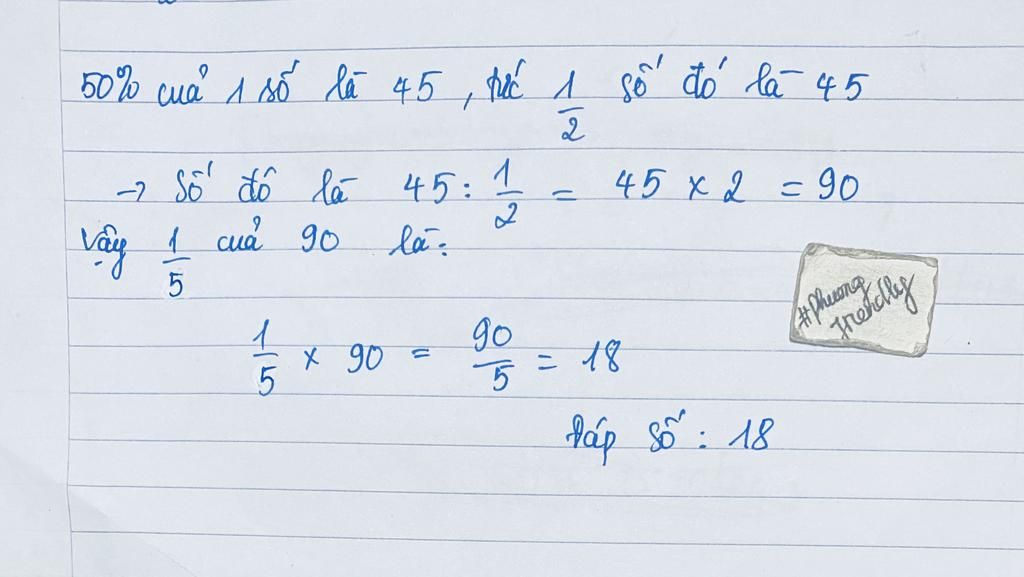 50% của 1 số là 45, tức 1/2 số đó là 45
→ Số đó là 45 : 1/2 = 45 x 2 = 90
Vậy 1/5 của 90 là:
1/5 x 90 = 90/5 = 18
Đáp số : 18
#phuong
friendly